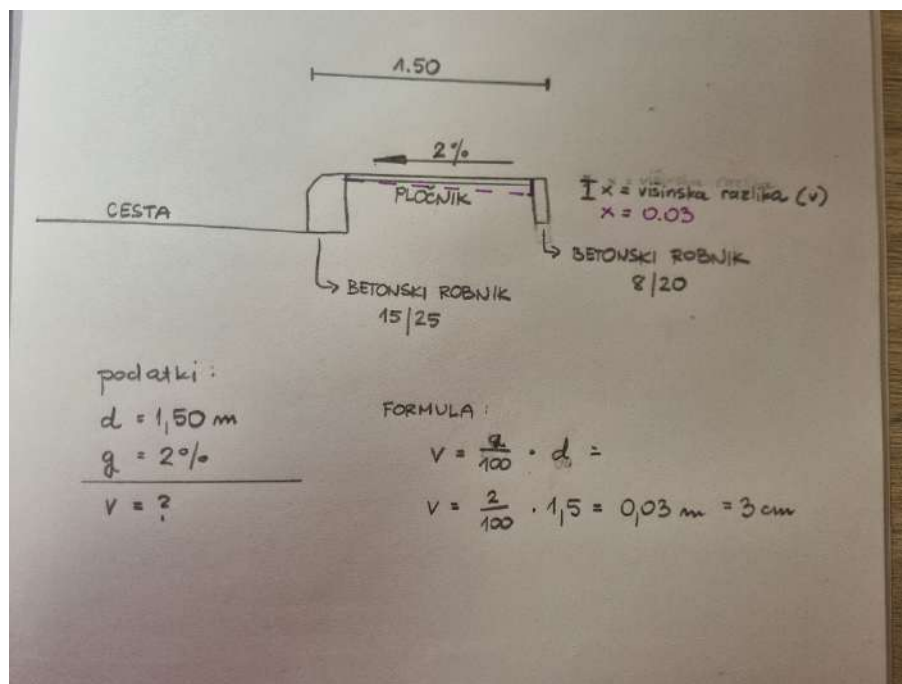 1.50
2%
PLOČNIK
I x = višinska razlika (v)
x = 0.03
CESTA
BETONSKI ROBNIK
8/20
BETONSKI ROBNIK
15/25
podatki:
d = 1,50 m
g = 2%
v = ?
FORMULA:
v = g/100 · d =
v = 2/100 · 1,5 = 0,03 m = 3 cm